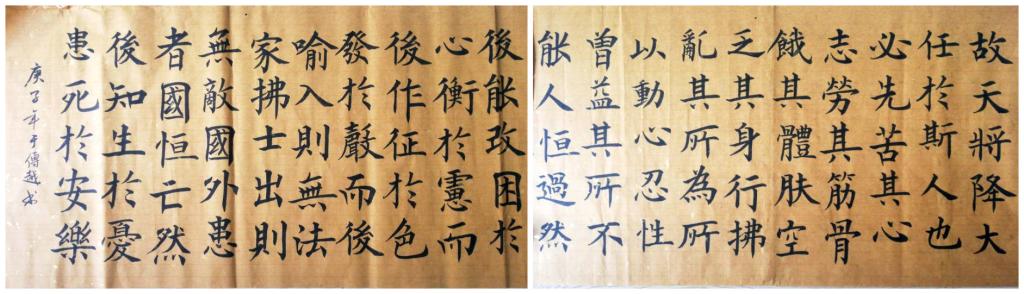 故天將降大
任於斯人也
必先苦其心
志勞其筋骨
餓其體肤空
乏其身行拂
亂其所為所
以動心忍性
曾益其所不
能人恒過然
後能改困於
心衡於慮而
後作征於色
發於聲而後
喻入則無法
家拂士出則
無敵國外患
者國恒亡然
後知生於憂
患死於安樂
庚子年于傳